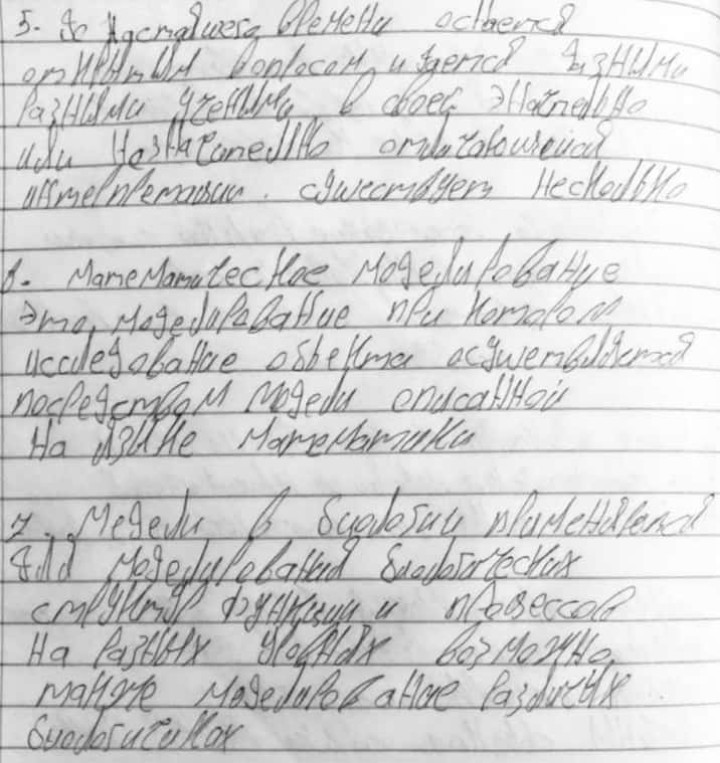 5. До настоящего времени остается
открытым вопросом и дается разными
разными учеными в своей значительно
или незначительно отличающейся
интерпретации. существует несколько
6. Математическое моделирование
Это, моделирование при котором
исследование объекта осуществляется
посредством модели описанной
на языке математики
7. Медели в биологии применяется
для моделирования биологических
структур функции и процессов
на разных уровнях возможно,
также моделирование различных
биологичиках